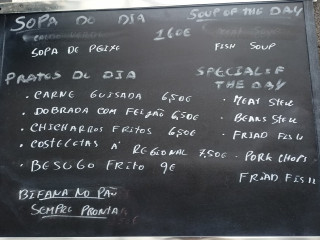 SOPA DO DIA
SOUP OF THE DAY
1.60€
SOPA DE PEIXE
FISH SOUP
PRATOS DO DIA
SPECIALS OF THE DAY
• CARNE GUISADA 6,50€
• MEAT STEW
• DOBRADA COM FEIJÃO 6,50€
• BEANS STEW
• CHICHARROS FRITOS 6,50€
• FRIAD FISH
• COSTELETAS A' REGIONAL 7.50€
• PORK CHOPS
• BESUGO FRITO 9€
FRIAD FISH
BIFANA NO PÃO
SEMPRE PRONTA